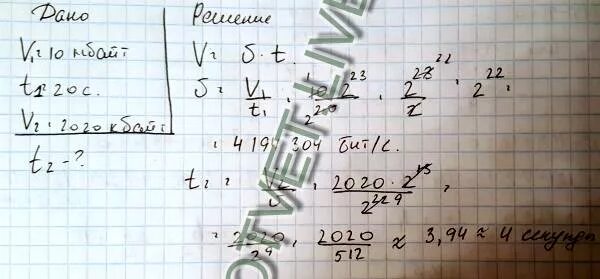 Дано
V₁ = 10 мбайт
t₁ = 20 с.
V₂ = 2020 кбайт
t₂ - ?
Решение
V = S · t.
S = V₁/t₁ = 10 · 2²³/20 = 2²³/2 = 2²² =
= 4194304 бит/с.
t₂ = V₂/υ = 2020 · 2¹³/2²² =
= 2020/2⁹ = 2020/512 ≈ 3,94 ≈ 4 секунды
OTVET.LIVE